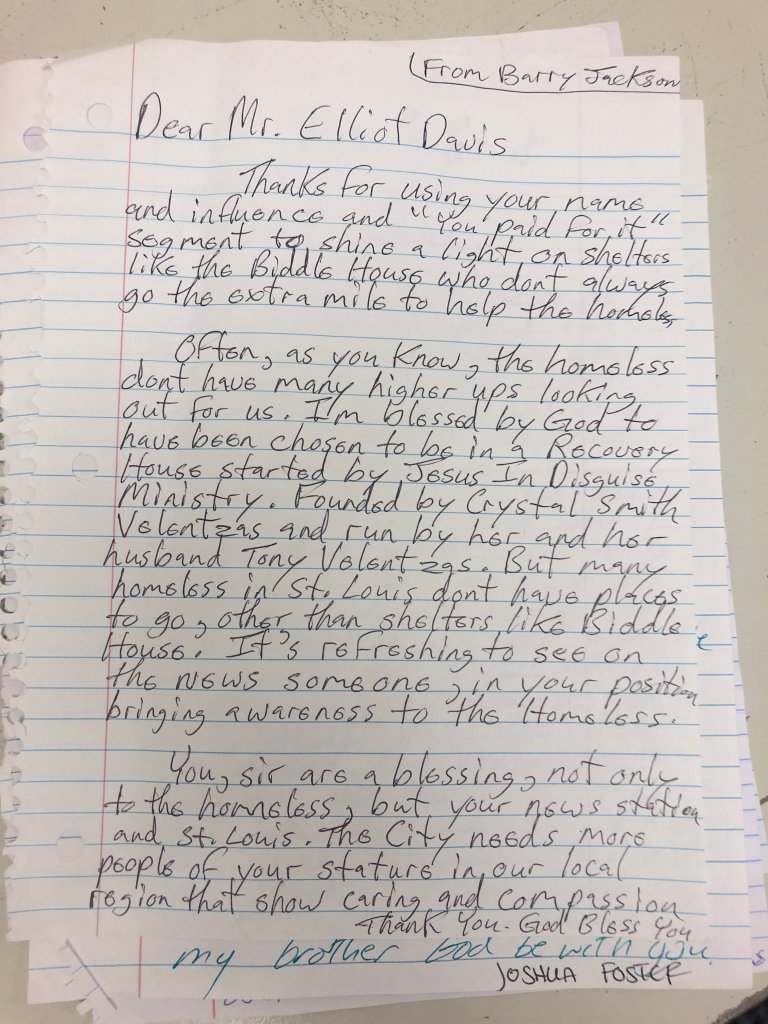 From Barry Jackson
Dear Mr. Elliot Davis
Thanks for using your name
and influence and "You paid for it"
segment to shine a light on shelters
like the Biddle House who dont always
go the extra mile to help the homeless
Often, as you know, the homeless
dont have many higher ups looking
out for us. I'm blessed by God to
have been chosen to be in a Recovery
House started by Jesus In Disguise
Ministry. Founded by Crystal Smith
Velentzas and run by her and her
husband Tony Velentzas. But many
homeless in St. Louis dont have places
to go, other than shelters like Biddle
House. It's refreshing to see on
the news someone, in your position
bringing awareness to the Homeless.
You, sir are a blessing, not only
to the homeless, but your news station
and St. Louis. The City needs more
people of your stature in our local
region that show caring and compassion
Thank You. God Bless You
my brother God be with you.
JOSHUA FOSTER